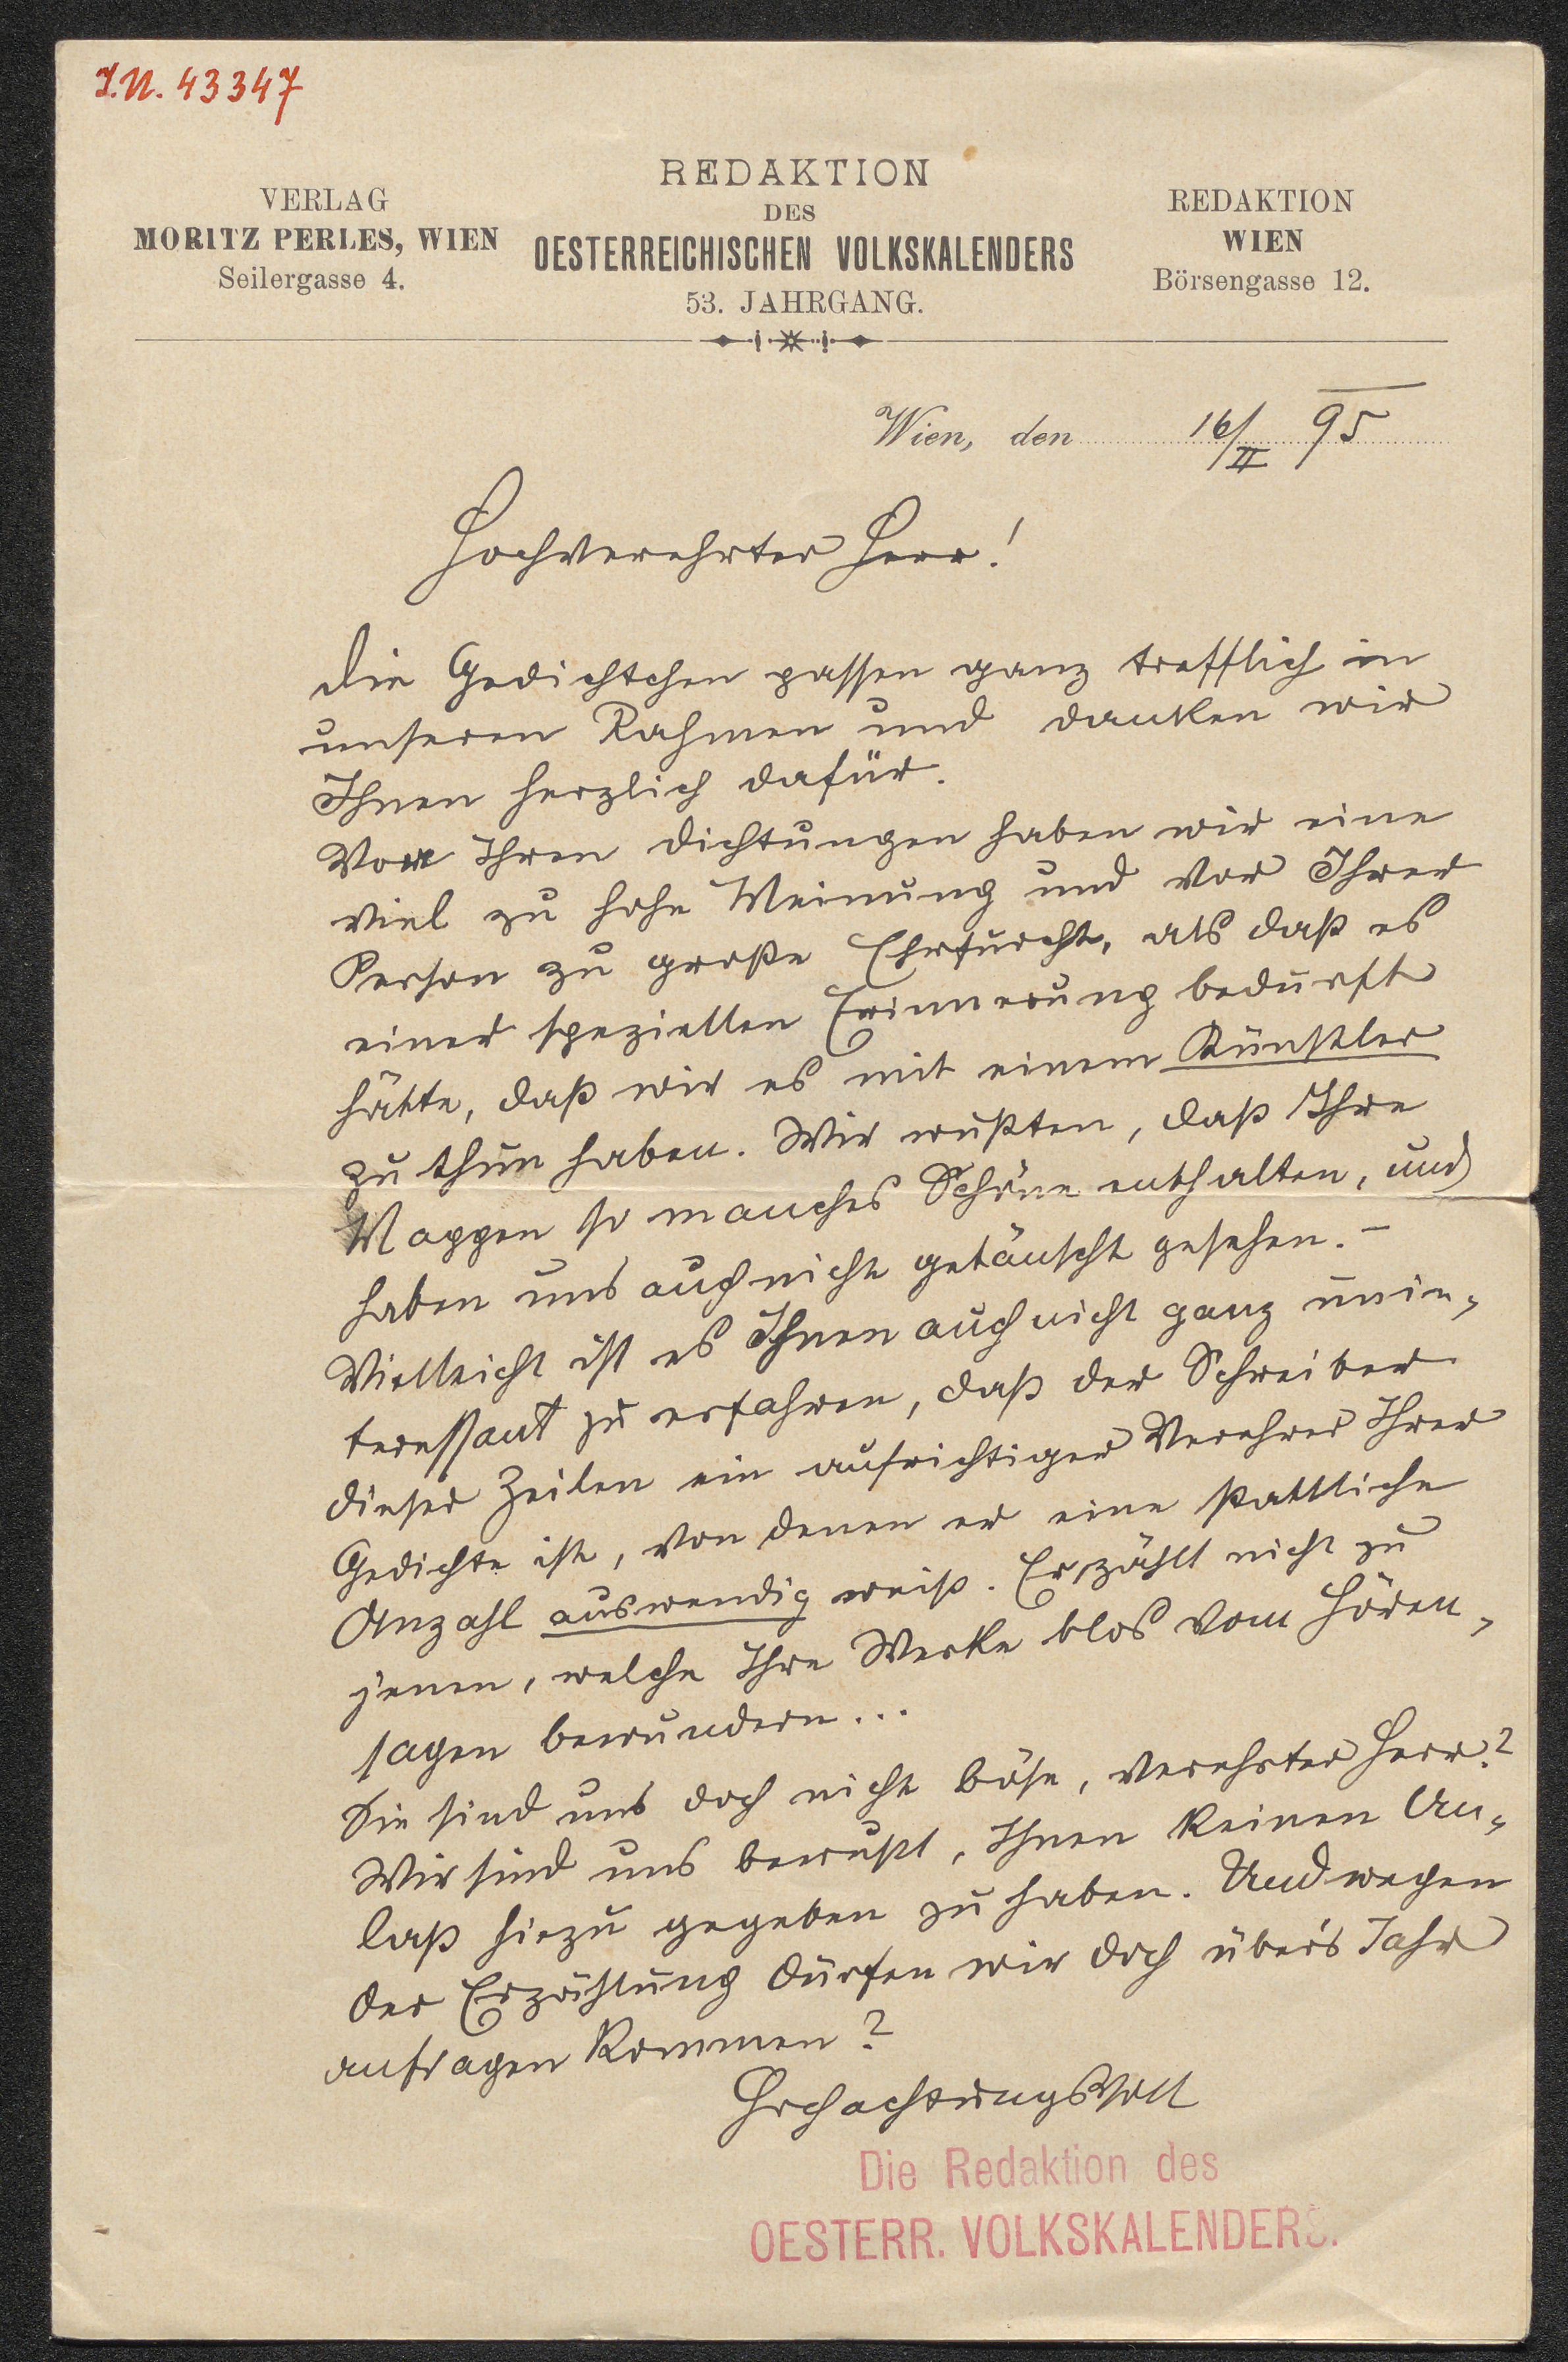 I.N. 43347
VERLAG
MORITZ PERLES, WIEN
Seilergasse 4.
REDAKTION
DES
OESTERREICHISCHEN VOLKSKALENDERS
53. JAHRGANG.
REDAKTION
WIEN
Börsengasse 12.
Wien, den 16/II 95
Hochverehrter Herr!
Die Gedichtchen passen ganz trefflich in
unseren Rahmen und danken wir
Ihnen herzlich dafür.
Von Ihren Dichtungen haben wir eine
viel zu hohe Meinung und vor Ihrer
Person zu große Ehrfurcht, als daß es
einer speziellen Erinnerung bedurft
hätte, daß wir es mit einem Künstler
zu thun haben. Wir wußten, daß Ihre
Mappen so manches Schöne enthalten, und
haben uns auch nicht getäuscht gesehen. –
Vielleicht ist es Ihnen auch nicht ganz unin-
teressant zu erfahren, daß der Schreiber
dieser Zeilen ein aufrichtiger Verehrer Ihrer
Gedichte ist, von denen er eine stattliche
Anzahl auswendig weiß. Er zählt nicht zu
jenen, welche Ihre Werke blos vom Hören-
sagen bewundern...
Sie sind uns doch nicht böse, verehrter Herr?
Wir sind uns bewußt, Ihnen keinen An-
laß hiezu gegeben zu haben. Und wegen
der Erzählung dürfen wir doch über's Jahr
anfragen kommen?
Hochachtungsvoll
Die Redaktion des
OESTERR. VOLKSKALENDERS.